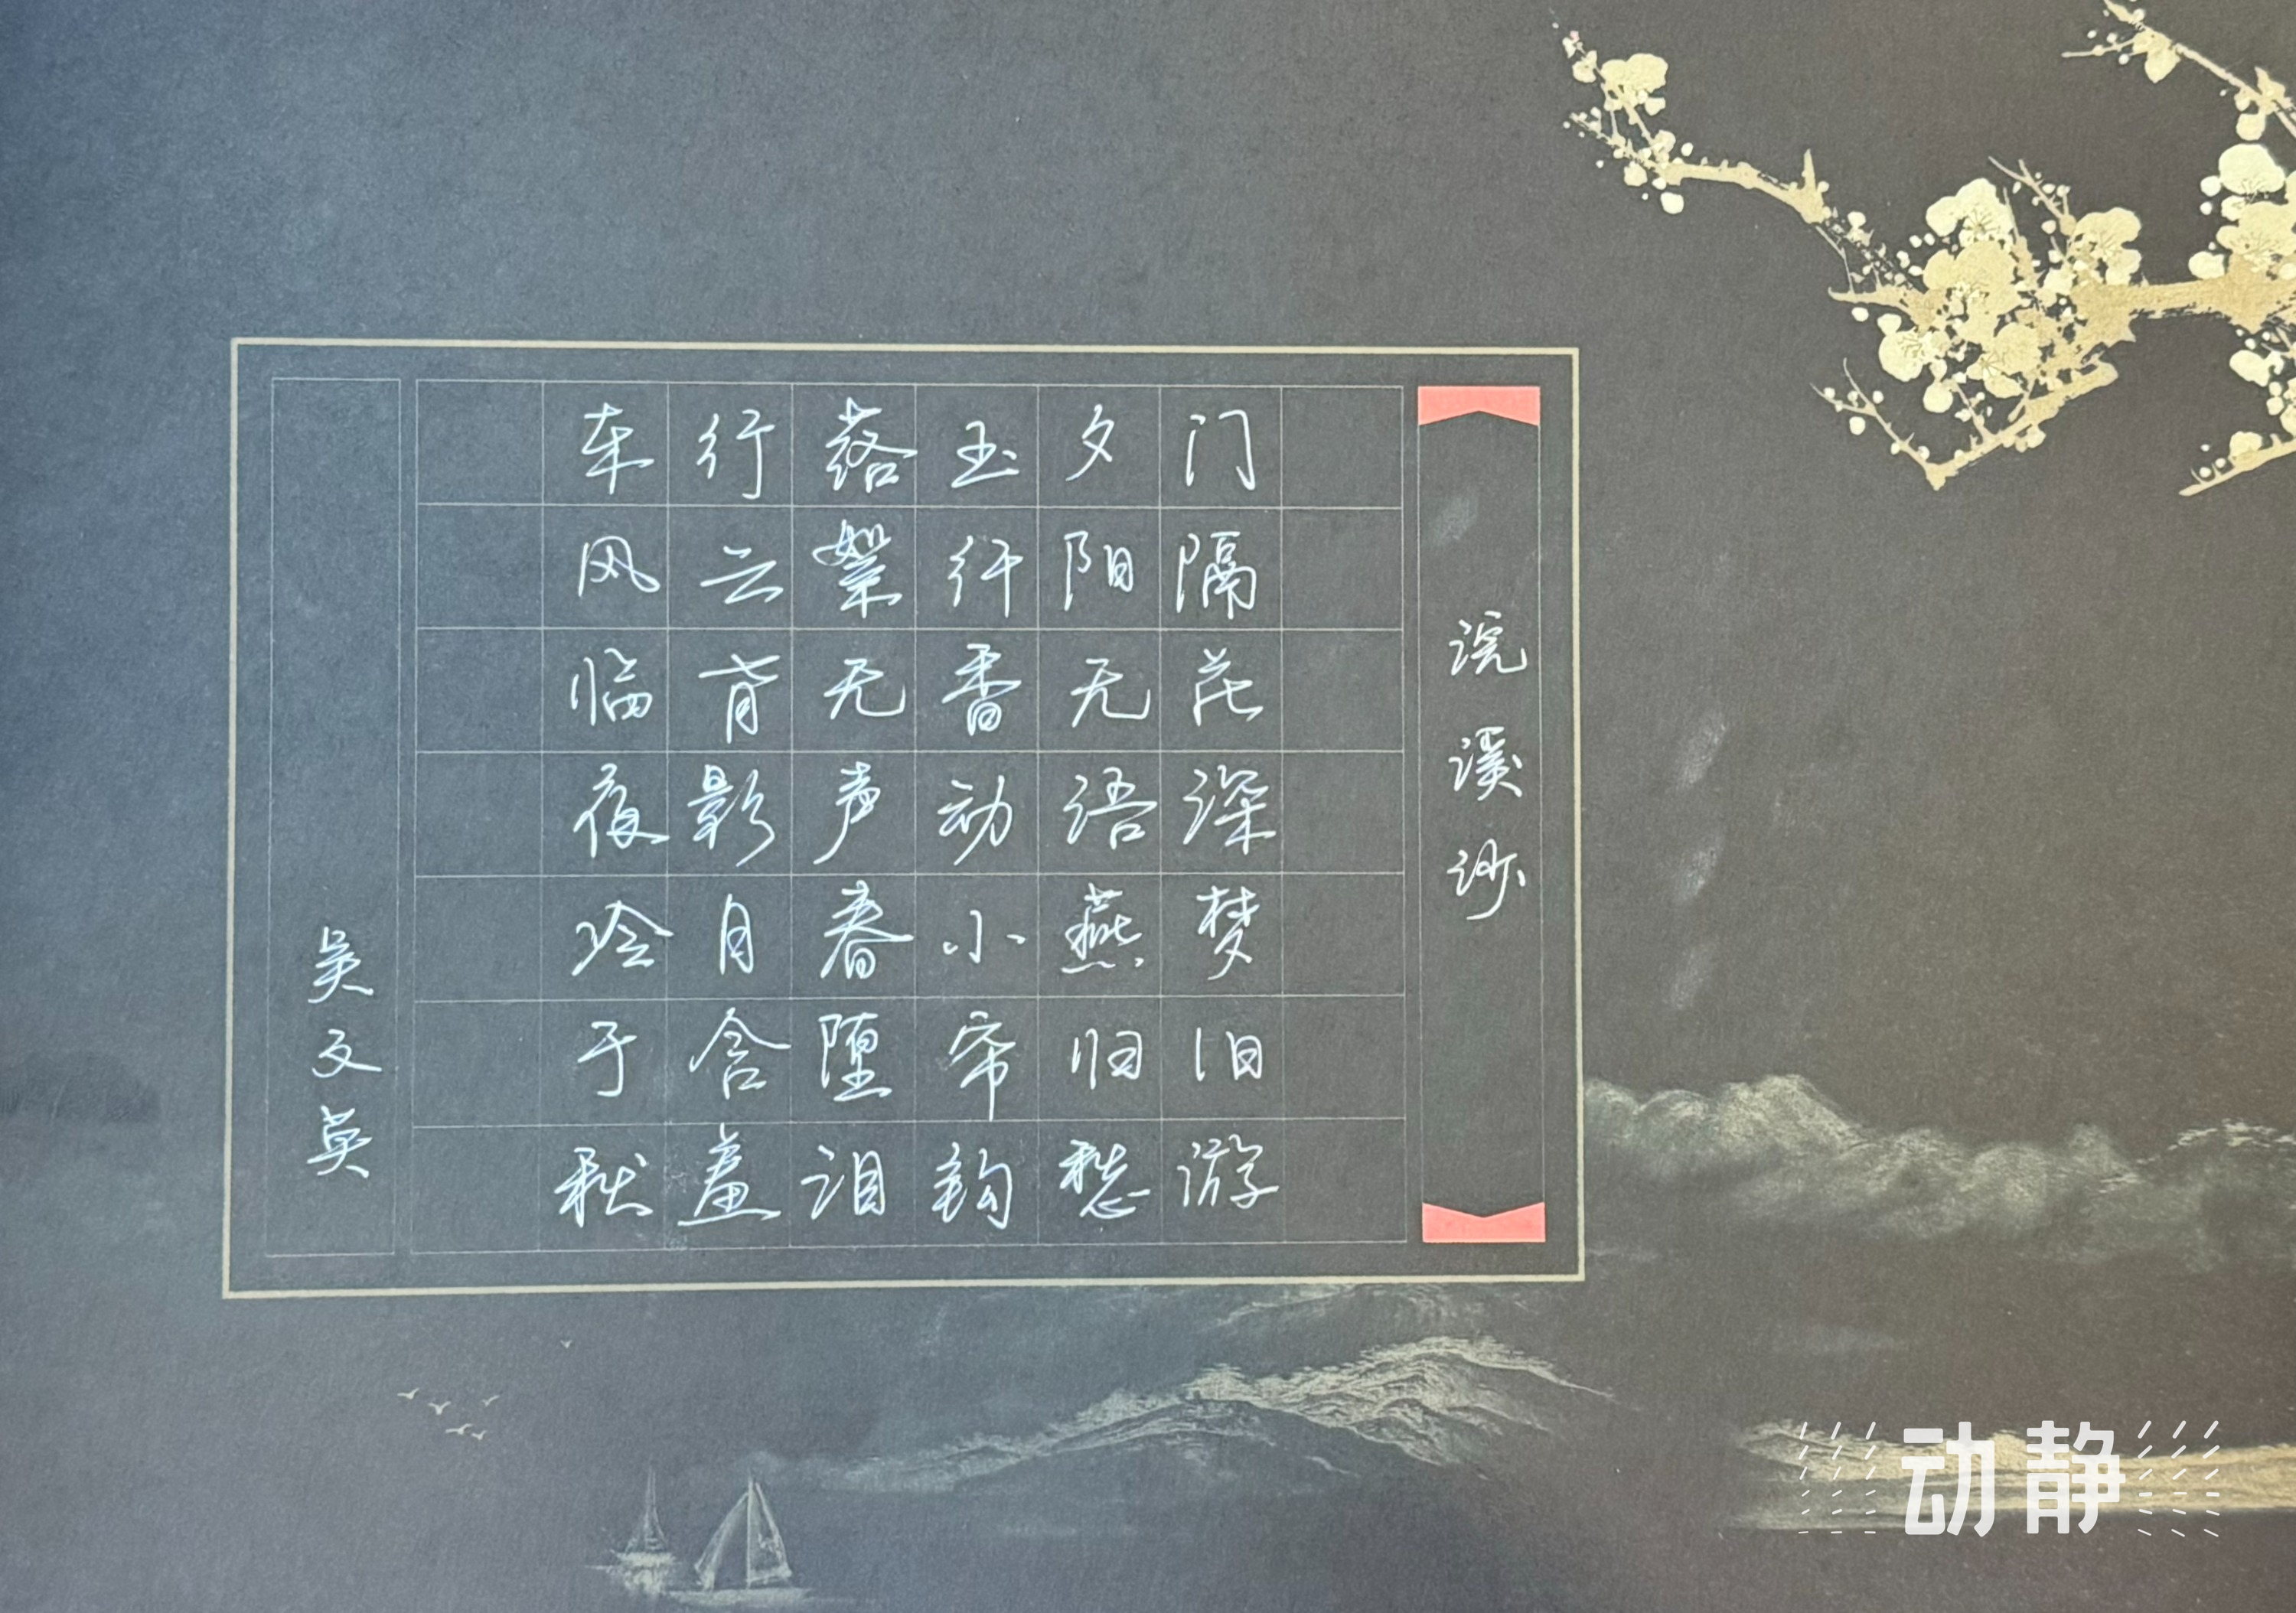 浣溪沙
门隔花深梦旧游
夕阳无语燕归愁
玉纤香动小帘钩
落絮无声春堕泪
行云有影月含羞
东风临夜冷于秋
吴文英
动静